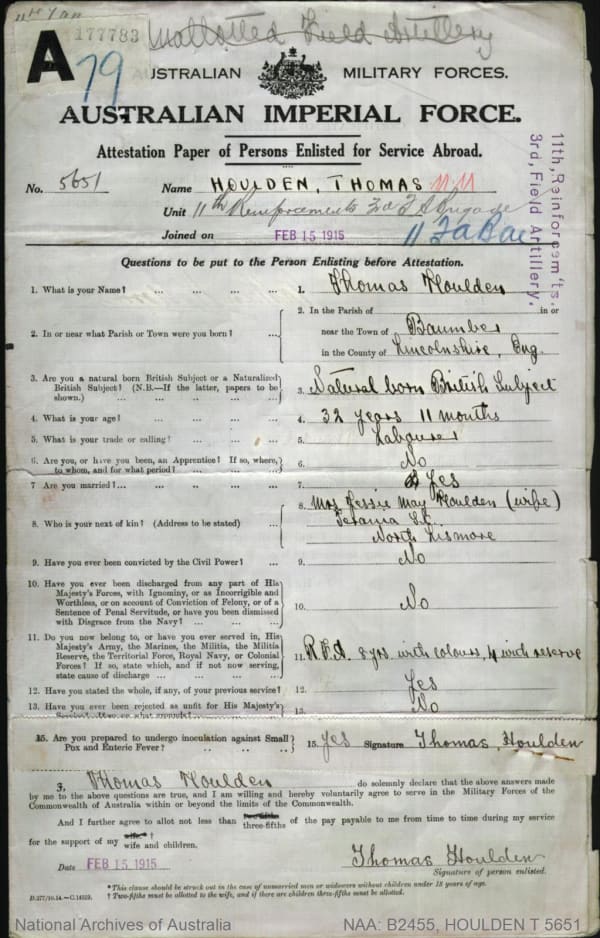 A
177783
79
Unallotted Field Artillery
AUSTRALIAN MILITARY FORCES.
AUSTRALIAN IMPERIAL FORCE.
Attestation Paper of Persons Enlisted for Service Abroad.
No. 5651 Name HOULDEN, THOMAS MM
Unit 11th Reinforcements 3d F A Brigade
Joined on FEB 15 1915
11th, Reinforcem'ts.
3rd, Field Artillery.
Questions to be put to the Person Enlisting before Attestation.
1. What is your Name? ... ... ... ... 1. Thomas Houlden
2. In or near what Parish or Town were you born? ... 2. In the Parish of in or
near the Town of Baumber
in the County of Lincolnshire, Eng.
3. Are you a natural born British Subject or a Naturalized
British Subject? (N.B.—If the latter, papers to be
shown.) ... ... ... ... 3. Natural born British Subject
4. What is your age? ... ... ... ... 4. 32 years 11 months
5. What is your trade or calling? ... ... ... 5. Labourer
6. Are you, or have you been, an Apprentice? If so, where,
to whom, and for what period? ... ... 6. No
7 Are you married?... ... ... ... ... 7. Yes
8. Who is your next of kin? (Address to be stated) ... 8. Mrs Jessie May Houlden (wife)
Terania St.
North Lismore
9. Have you ever been convicted by the Civil Power? ... 9. No
10. Have you ever been discharged from any part of His
Majesty's Forces, with Ignominy, or as Incorrigible and
Worthless, or on account of Conviction of Felony, or of a
Sentence of Penal Servitude, or have you been dismissed
with Disgrace from the Navy? ... ... 10. No
11. Do you now belong to, or have you ever served in, His
Majesty's Army, the Marines, the Militia, the Militia
Reserve, the Territorial Force, Royal Navy, or Colonial
Forces? If so, state which, and if not now serving,
state cause of discharge ... ... ... 11. R.F.A. 8 yrs with colours, 4 with reserve
12. Have you stated the whole, if any, of your previous service? 12. Yes
13. Have you ever been rejected as unfit for His Majesty's 13. No
15. Are you prepared to undergo inoculation against Small
Pox and Enteric Fever? .. .. .. 15. Yes Signature Thomas Houlden
I, Thomas Houlden do solemnly declare that the above answers made
by me to the above questions are true, and I am willing and hereby voluntarily agree to serve in the Military Forces of the
Commonwealth of Australia within or beyond the limits of the Commonwealth.
And I further agree to allot not less than three-fifths of the pay payable to me from time to time during my service
for the support of my wife and children.
Date FEB 15 1915 Thomas Houlden
Signature of person enlisted.
* This clause should be struck out in the case of unmarried men or widowers without children under 18 years of age.
† Two-fifths must be allotted to the wife, and if there are children three-fifths must be allotted.
D.277/10.14.—C.14529.
National Archives of Australia NAA: B2455, HOULDEN T 5651